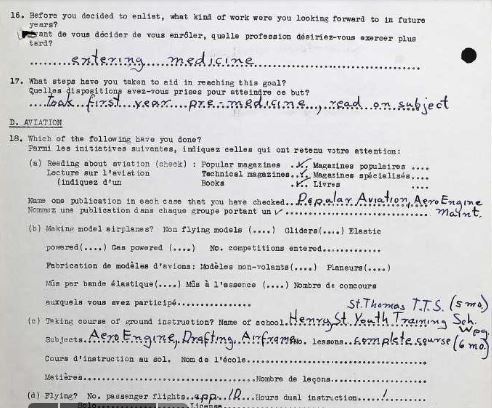 16. Before you decided to enlist, what kind of work were you looking forward to in future
years?
Avant de vous décider de vous enrôler, quelle profession désiriez-vous exercer plus
tard?
entering medicine
17. What steps have you taken to aid in reaching this goal?
Quelles dispositions avez-vous prises pour atteindre ce but?
took first year pre-medicine, read on subject
D. AVIATION
18. Which of the following have you done?
Parmi les initiatives suivantes, indiquez celles qui ont retenu votre attention:
(a) Reading about aviation (check) : Popular magazines ..✓.. Magazines populaires ....
Lecture sur l'aviation Technical magazines..✓.. Magazines spécialisés....
(indiquez d'un Books ..✓.. Livres ....
Name one publication in each case that you have checked.. Popular Aviation, Aero Engine
Nommez une publication dans chaque groupe portant un ✓ Maint.
(b) Making model airplanes? Non flying models (....) Gliders(....) Elastic
powered(....) Gas powered (....) No. competitions entered............
Fabrication de modèles d'avions: Modèles non-volants(....) Planeurs(....)
Mûs par bande élastique(....) Mûs à l'essence (....) Nombre de concours
auxquels vous avez participé................
St. Thomas T.T.S. (5 mo)
(c) Taking course of ground instruction? Name of school. Henry St Youth Training Sch.
Wpg
Subjects. Aero Engine, Drafting, Airframe No. lessons. complete course (6 mo.)
Cours d'instruction au sol. Nom de l'école................
Matières................Nombre de leçons................
(d) Flying? No. passenger flights. app. 10. Hours dual instruction. 1
Solo License